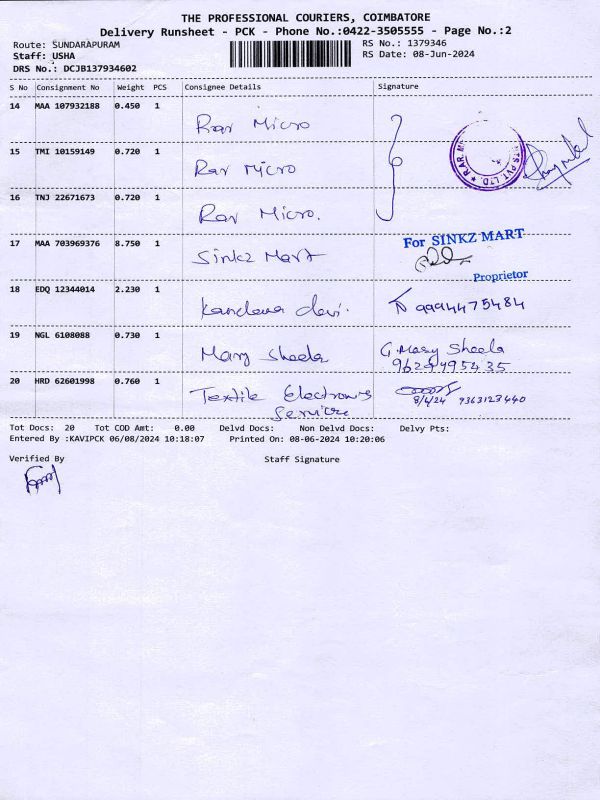 THE PROFESSIONAL COURIERS, COIMBATORE
Delivery Runsheet - PCK - Phone No.:0422-3505555 - Page No.:2
Route: SUNDARAPURAM
RS No.: 1379346
Staff: USHA
RS Date: 08-Jun-2024
DRS No.: DCJB137934602
S No Consignment No Weight PCS Consignee Details Signature
14 MAA 107932188 0.450 1
Rar Micro
15 TMI 10159149 0.720 1
Rar Micro
16 TNJ 22671673 0.720 1
Rar Micro.
17 MAA 703969376 8.750 1
Sinkz Mart
For SINKZ MART
Proprietor
18 EDQ 12344014 2.230 1
devi. 9994475484
19 NGL 6108088 0.730 1
Mary Sheela G. Mary Sheela
20 HRD 62601998 0.760 1
Textile Electronis
Service
8/6/24 9363123440
Tot Docs: 20 Tot COD Amt: 0.00 Delvd Docs: Non Delvd Docs: Delvy Pts:
Entered By :KAVIPCK 06/08/2024 10:18:07 Printed On: 08-06-2024 10:20:06
Verified By Staff Signature